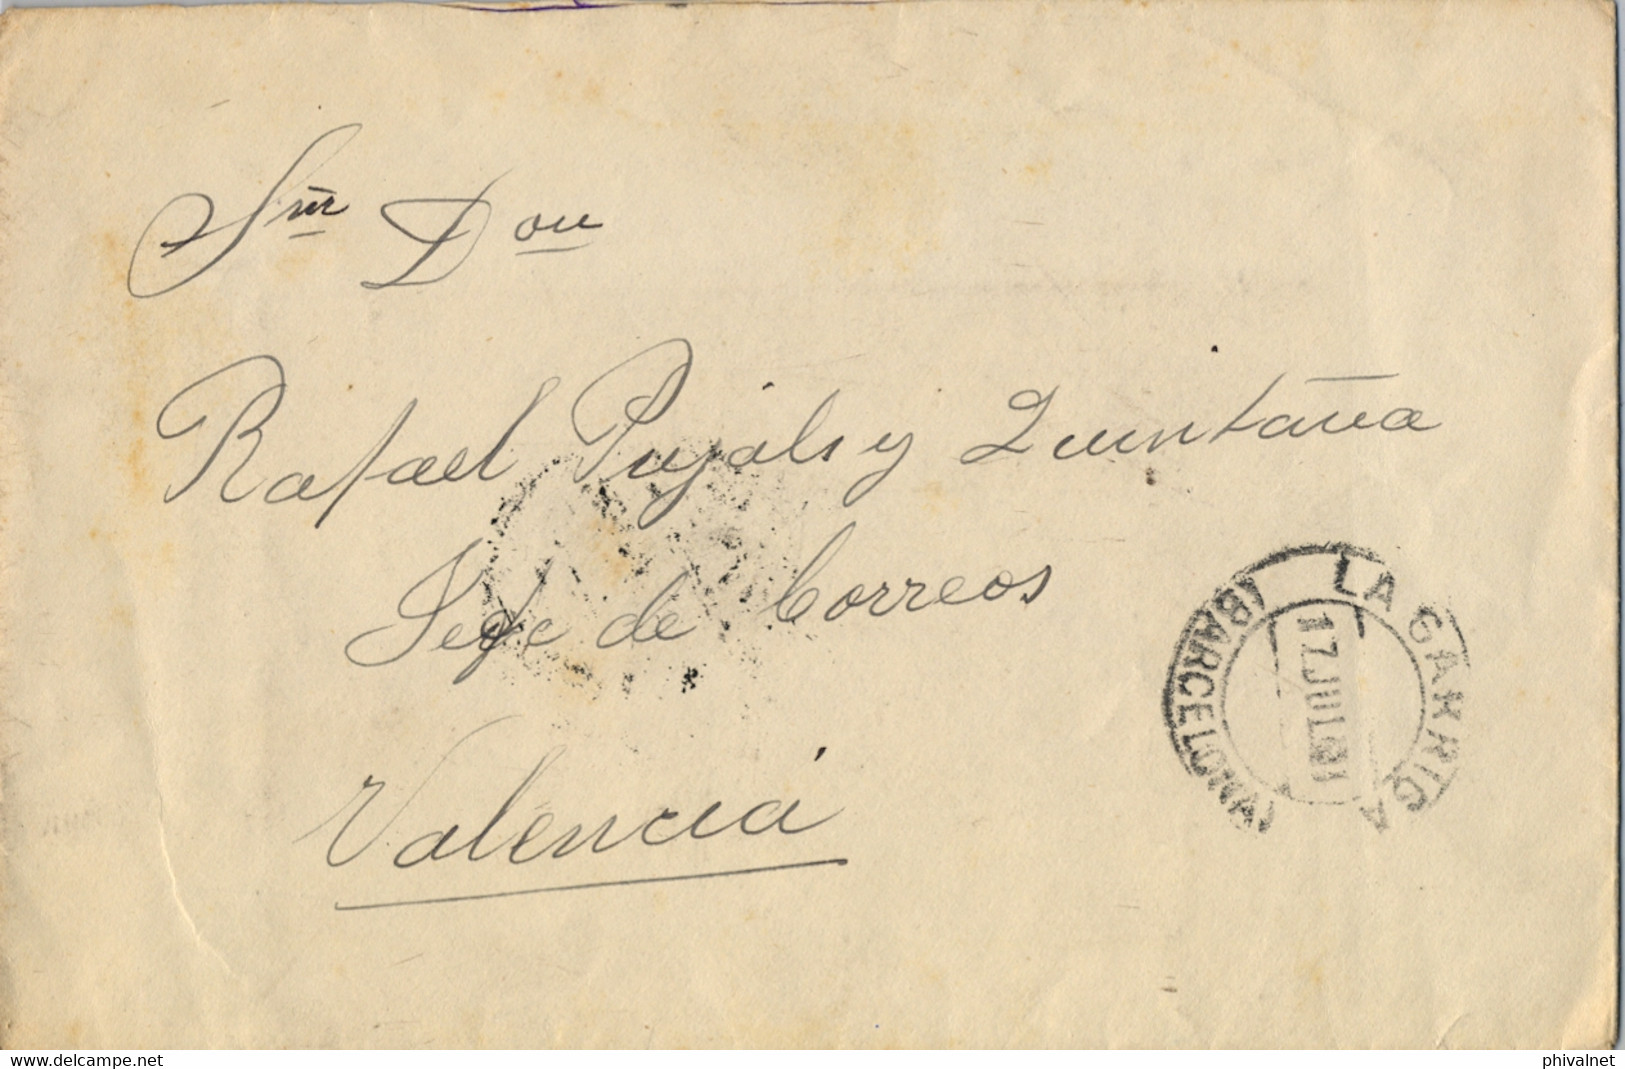 Snr Don
Rafael Pujals y Quintana
Jefe de Correos
Valencia
LA GARRIGA
(BARCELONA)
17 JUL 31
delcampe.net
phivalnet